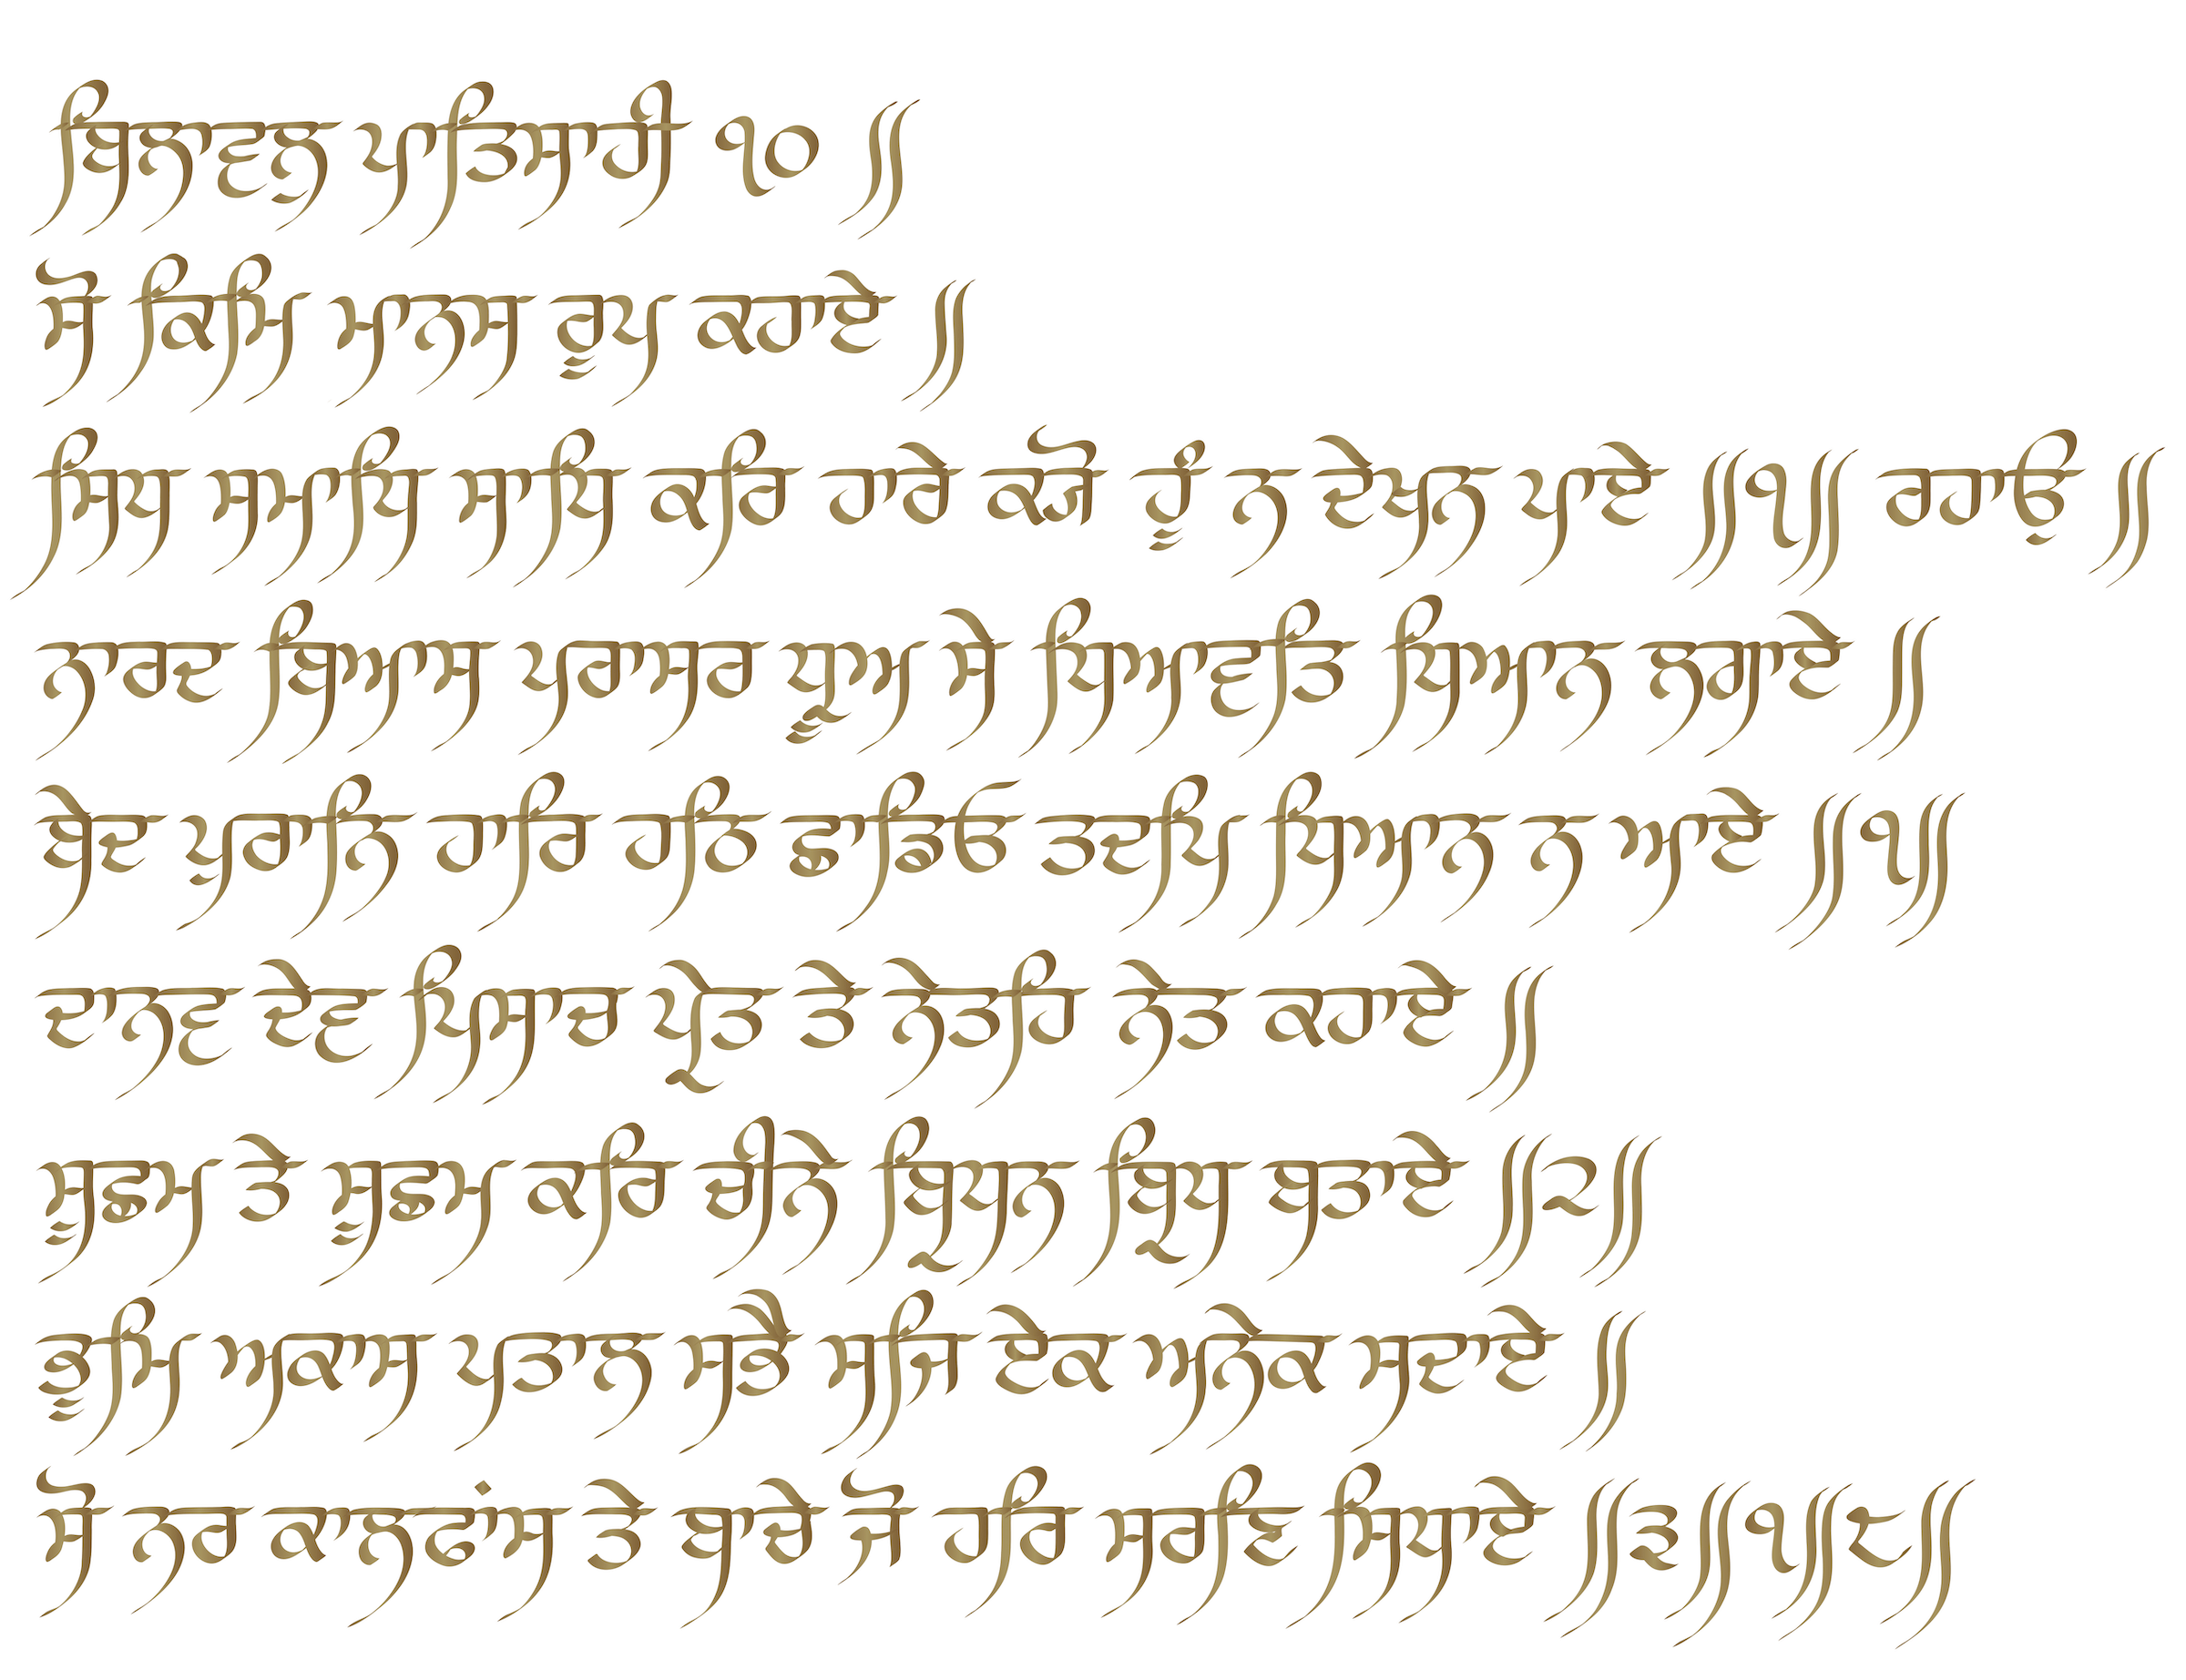 ਬਿਲਾਵਲੁ ਪਾਤਿਸਾਹੀ ੧੦ ॥
ਸੋ ਕਿਮਿ ਮਾਨਸ ਰੂਪ ਕਹਾਏ ॥
ਸਿਧ ਸਮਾਧਿ ਸਾਧਿ ਕਰਿ ਹਾਰੇ ਕਯੋ ਹੂੰ ਨ ਦੇਖਨ ਪਾਏ ॥੧॥ ਰਹਾਉ ॥
ਨਾਰਦ ਬਿਆਸ ਪਰਾਸਰ ਧ੍ਰੂਅ ਸੇ ਧਿਆਵਤਿ ਧਿਆਨ ਲਗਾਏ ॥
ਬੇਦ ਪੁਰਾਨਿ ਹਾਰਿ ਹਠਿ ਛਾਡਿਓ ਤਦਪਿ ਧਿਆਨ ਨ ਆਏ ॥੧॥
ਦਾਨਵ ਦੇਵ ਪਿਸਾਚ ਪ੍ਰੇਤ ਤੇ ਨੇਤਹਿ ਨੇਤ ਕਹਾਏ ॥
ਸੂਛਮ ਤੇ ਸੂਛਮ ਕਰਿ ਚੀਨੇ ਬ੍ਰਿਧਨ ਬ੍ਰਿਧ ਬਤਾਏ ॥੨॥
ਭੂਮਿ ਅਕਾਸ ਪਤਾਲ ਸਭੈ ਸਜਿ ਏਕ ਅਨੇਕ ਸਦਾਏ ॥
ਸੋ ਨਰ ਕਾਲਫਾਂਸ ਤੇ ਬਾਚੇ ਜੋ ਹਰਿ ਸਰਣਿ ਸਿਧਾਏ ॥੩॥੧॥੮॥